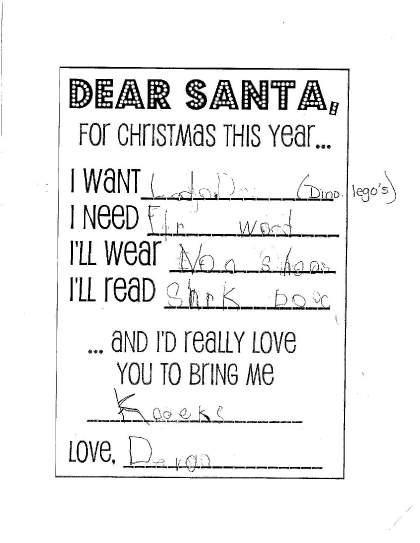 DEAR SANTA,
FOR CHRISTMAS THIS YEAR...
I WANT (Dino lego's)
I NEED
I'LL WEAR Noo shoos
I'LL READ Shrk booc
... AND I'D REALLY LOVE
YOU TO BRING ME
LOVE,